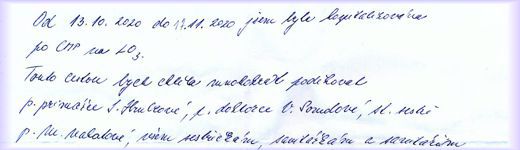 Od 13.10.2020 do 17.11.2020 jsem byla hospitalizována
po CMP na LO3.
Touto cestou bych chtěla mnohokrát poděkovat
p. primářce S. , p. doktorce V. , st. sestře
p. M. , všem sestřičkám, sanitářkám a sanitářům